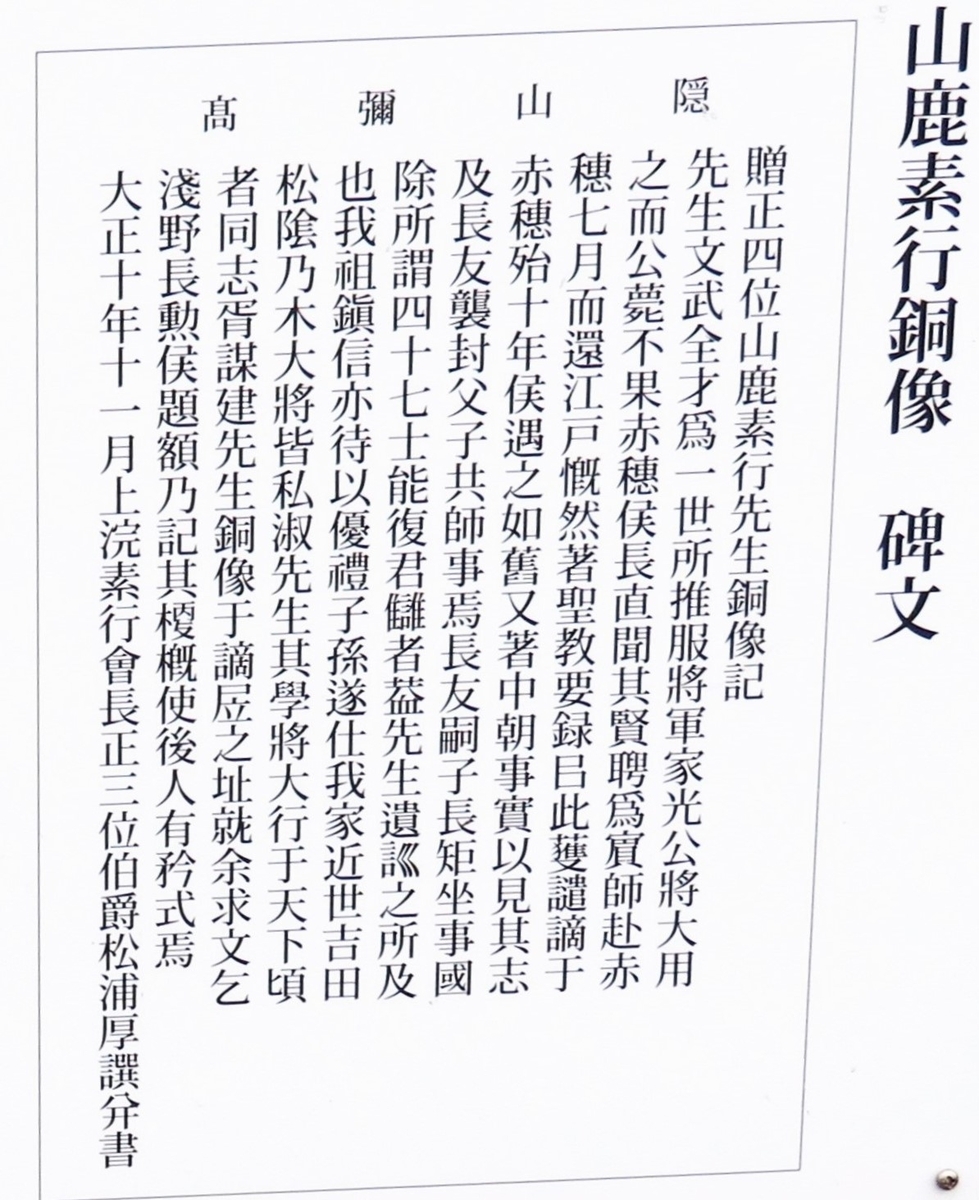 山鹿素行銅像　碑文
隠　山　彌　髙
贈正四位山鹿素行先生銅像記
先生文武全才爲一世所推服將軍家光公將大用
之而公薨不果赤穗侯長直聞其賢聘爲賓師赴赤
穗七月而還江戸慨然著聖教要録㠯此蒦譴謫于
赤穗殆十年侯遇之如舊又著中朝事實以見其志
及長友襲封父子共師事焉長友嗣子長矩坐事國
除所謂四十七士能復君讎者葢先生遺訓之所及
也我祖鎭信亦待以優禮子孫遂仕我家近世吉田
松陰乃木大將皆私淑先生其學將大行于天下頃
者同志胥謀建先生銅像于謫𡨥之址就余求文乞
淺野長勲侯題額乃記其榎槪使後人有矜式焉
大正十年十一月上浣素行會長正三位伯爵松浦厚譔并書